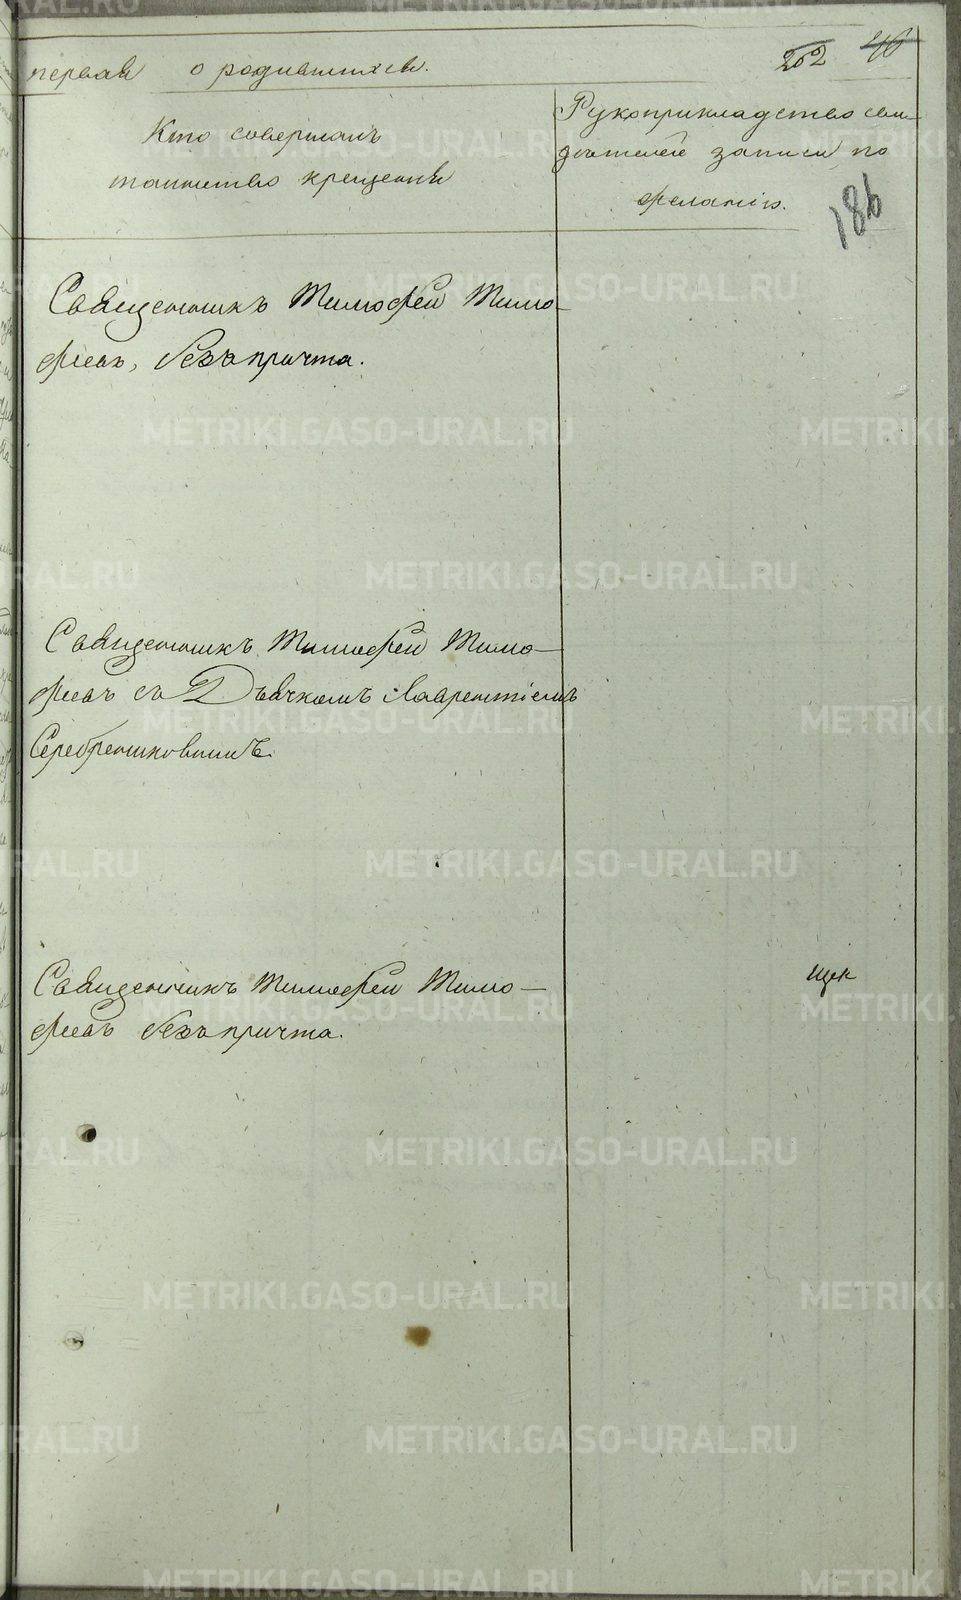 первая о родившихся.
202 46
Кто совершалъ
таинство крещенія
Рукоприкладство сви-
дѣтелей записи по
желанію.
186
Священникъ Тимофей Тимо-
феевъ, безъ причта.
Священникъ Тимофей Тимо-
феевъ съ Дьячкомъ Лаврентіемъ
Серебренниковымъ.
Священникъ Тимофей Тимо-
феевъ безъ причта.
METRIKI.GASO-URAL.RU